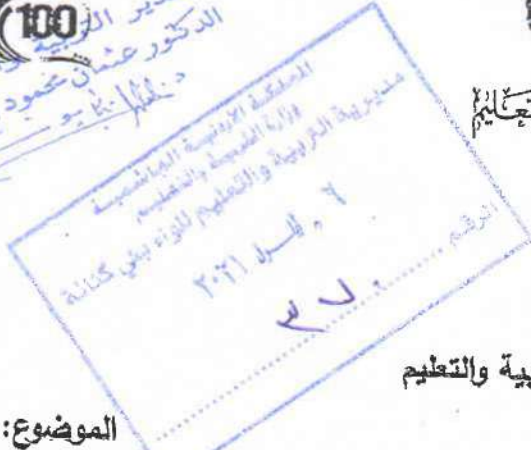 100
مدير التربية
الدكتور عثمان محمود
المملكة الأردنية الهاشمية
وزارة التربية والتعليم
مديرية التربية والتعليم للواء بني كنانة
٢٠٢١
الرقم
بية والتعليم
الموضوع: